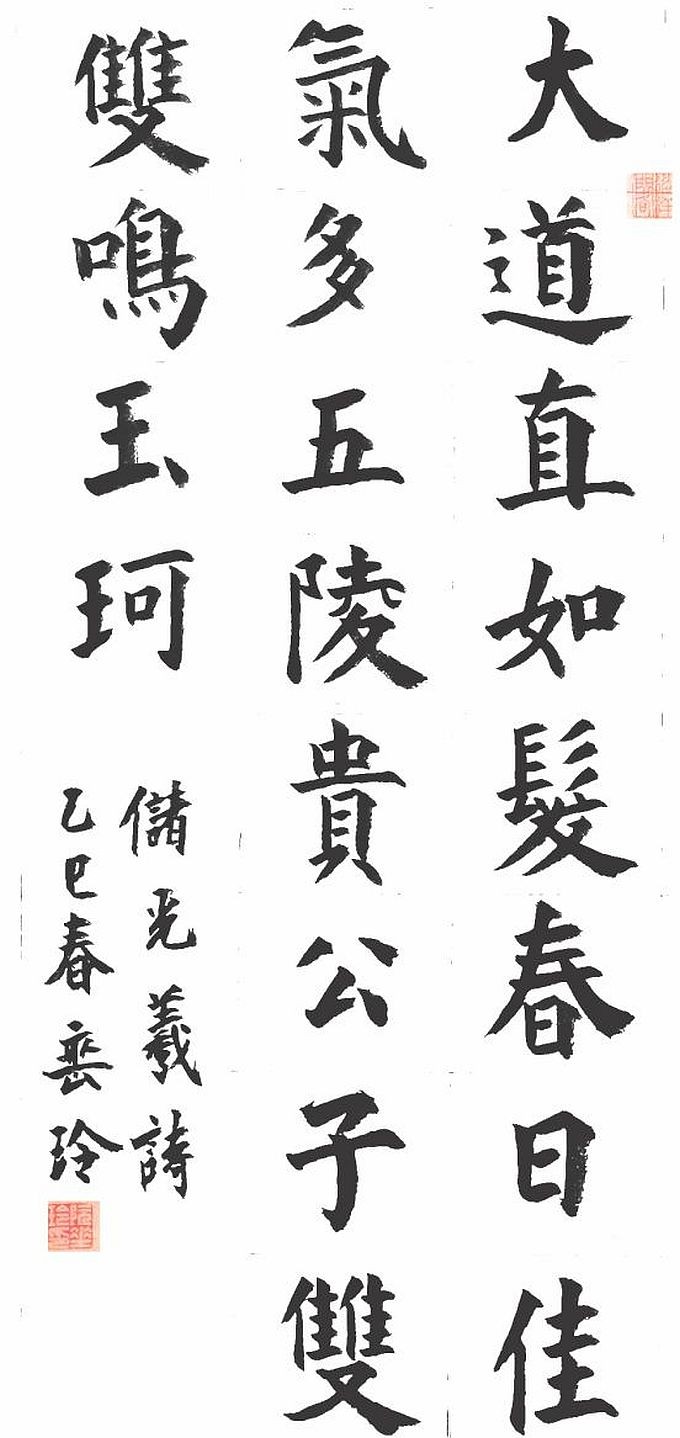 大道直如髮春日佳
氣多五陵貴公子雙
雙鳴玉珂
儲光羲詩
乙巳春岳玲